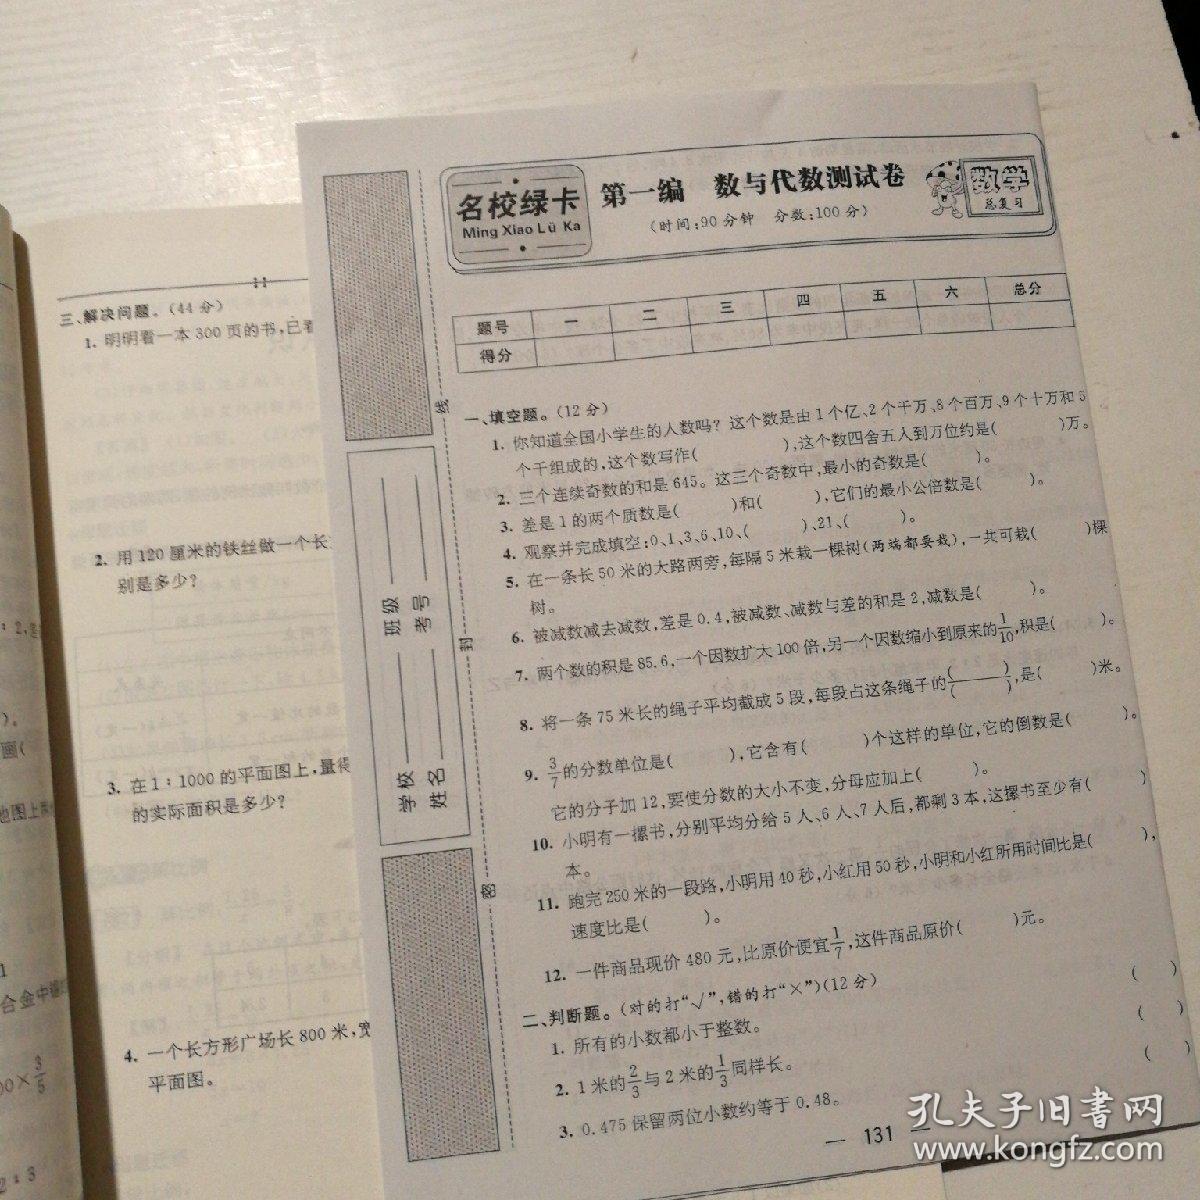 名校绿卡
Ming Xiao Lü Ka
第一编 数与代数测试卷
(时间:90分钟 分数:100分)
数学
总复习
题号 一 二 三 四 五 六 总分
得分
一、填空题。(12分)
1. 你知道全国小学生的人数吗? 这个数是由1个亿、2个千万、8个百万、9个十万和5
个千组成的,这个数写作( ),这个数四舍五入到万位约是( )万。
2. 三个连续奇数的和是645。这三个奇数中,最小的奇数是( )。
3. 差是1的两个质数是( )和( ),它们的最小公倍数是( )。
4. 观察并完成填空:0、1、3、6、10、( )、21、( )。
5. 在一条长50米的大路两旁,每隔5米栽一棵树(两端都要栽),一共可栽( )棵
树。
6. 被减数减去减数,差是0.4,被减数、减数与差的和是2,减数是( )。
7. 两个数的积是85.6,一个因数扩大100倍,另一个因数缩小到原来的1/10,积是( )。
8. 将一条75米长的绳子平均截成5段,每段占这条绳子的( )/( ),是( )米。
9. 3/7的分数单位是( ),它含有( )个这样的单位,它的倒数是( )。
它的分子加12,要使分数的大小不变,分母应加上( )。
10. 小明有一摞书,分别平均分给5人、6人、7人后,都剩3本,这摞书至少有( )
本。
11. 跑完250米的一段路,小明用40秒,小红用50秒,小明和小红所用时间比是( ),
速度比是( )。
12. 一件商品现价480元,比原价便宜1/7,这件商品原价( )元。
二、判断题。(对的打“√”,错的打“×”)(12分)
1. 所有的小数都小于整数。 ( )
2. 1米的2/3与2米的1/3同样长。 ( )
3. 0.475保留两位小数约等于0.48。 ( )
— 131 —
线
封
密
学校 班级
姓名 考号
三、解决问题。(44分)
1. 明明看一本300页的书,已看
2. 用120厘米的铁丝做一个长
别是多少?
3. 在1:1000的平面图上,量得
的实际面积是多少?
4. 一个长方形广场长800米,宽
平面图。
)。
画(
地图上
合金中
×3/5
2:3
孔夫子旧书网
www.kongfz.com